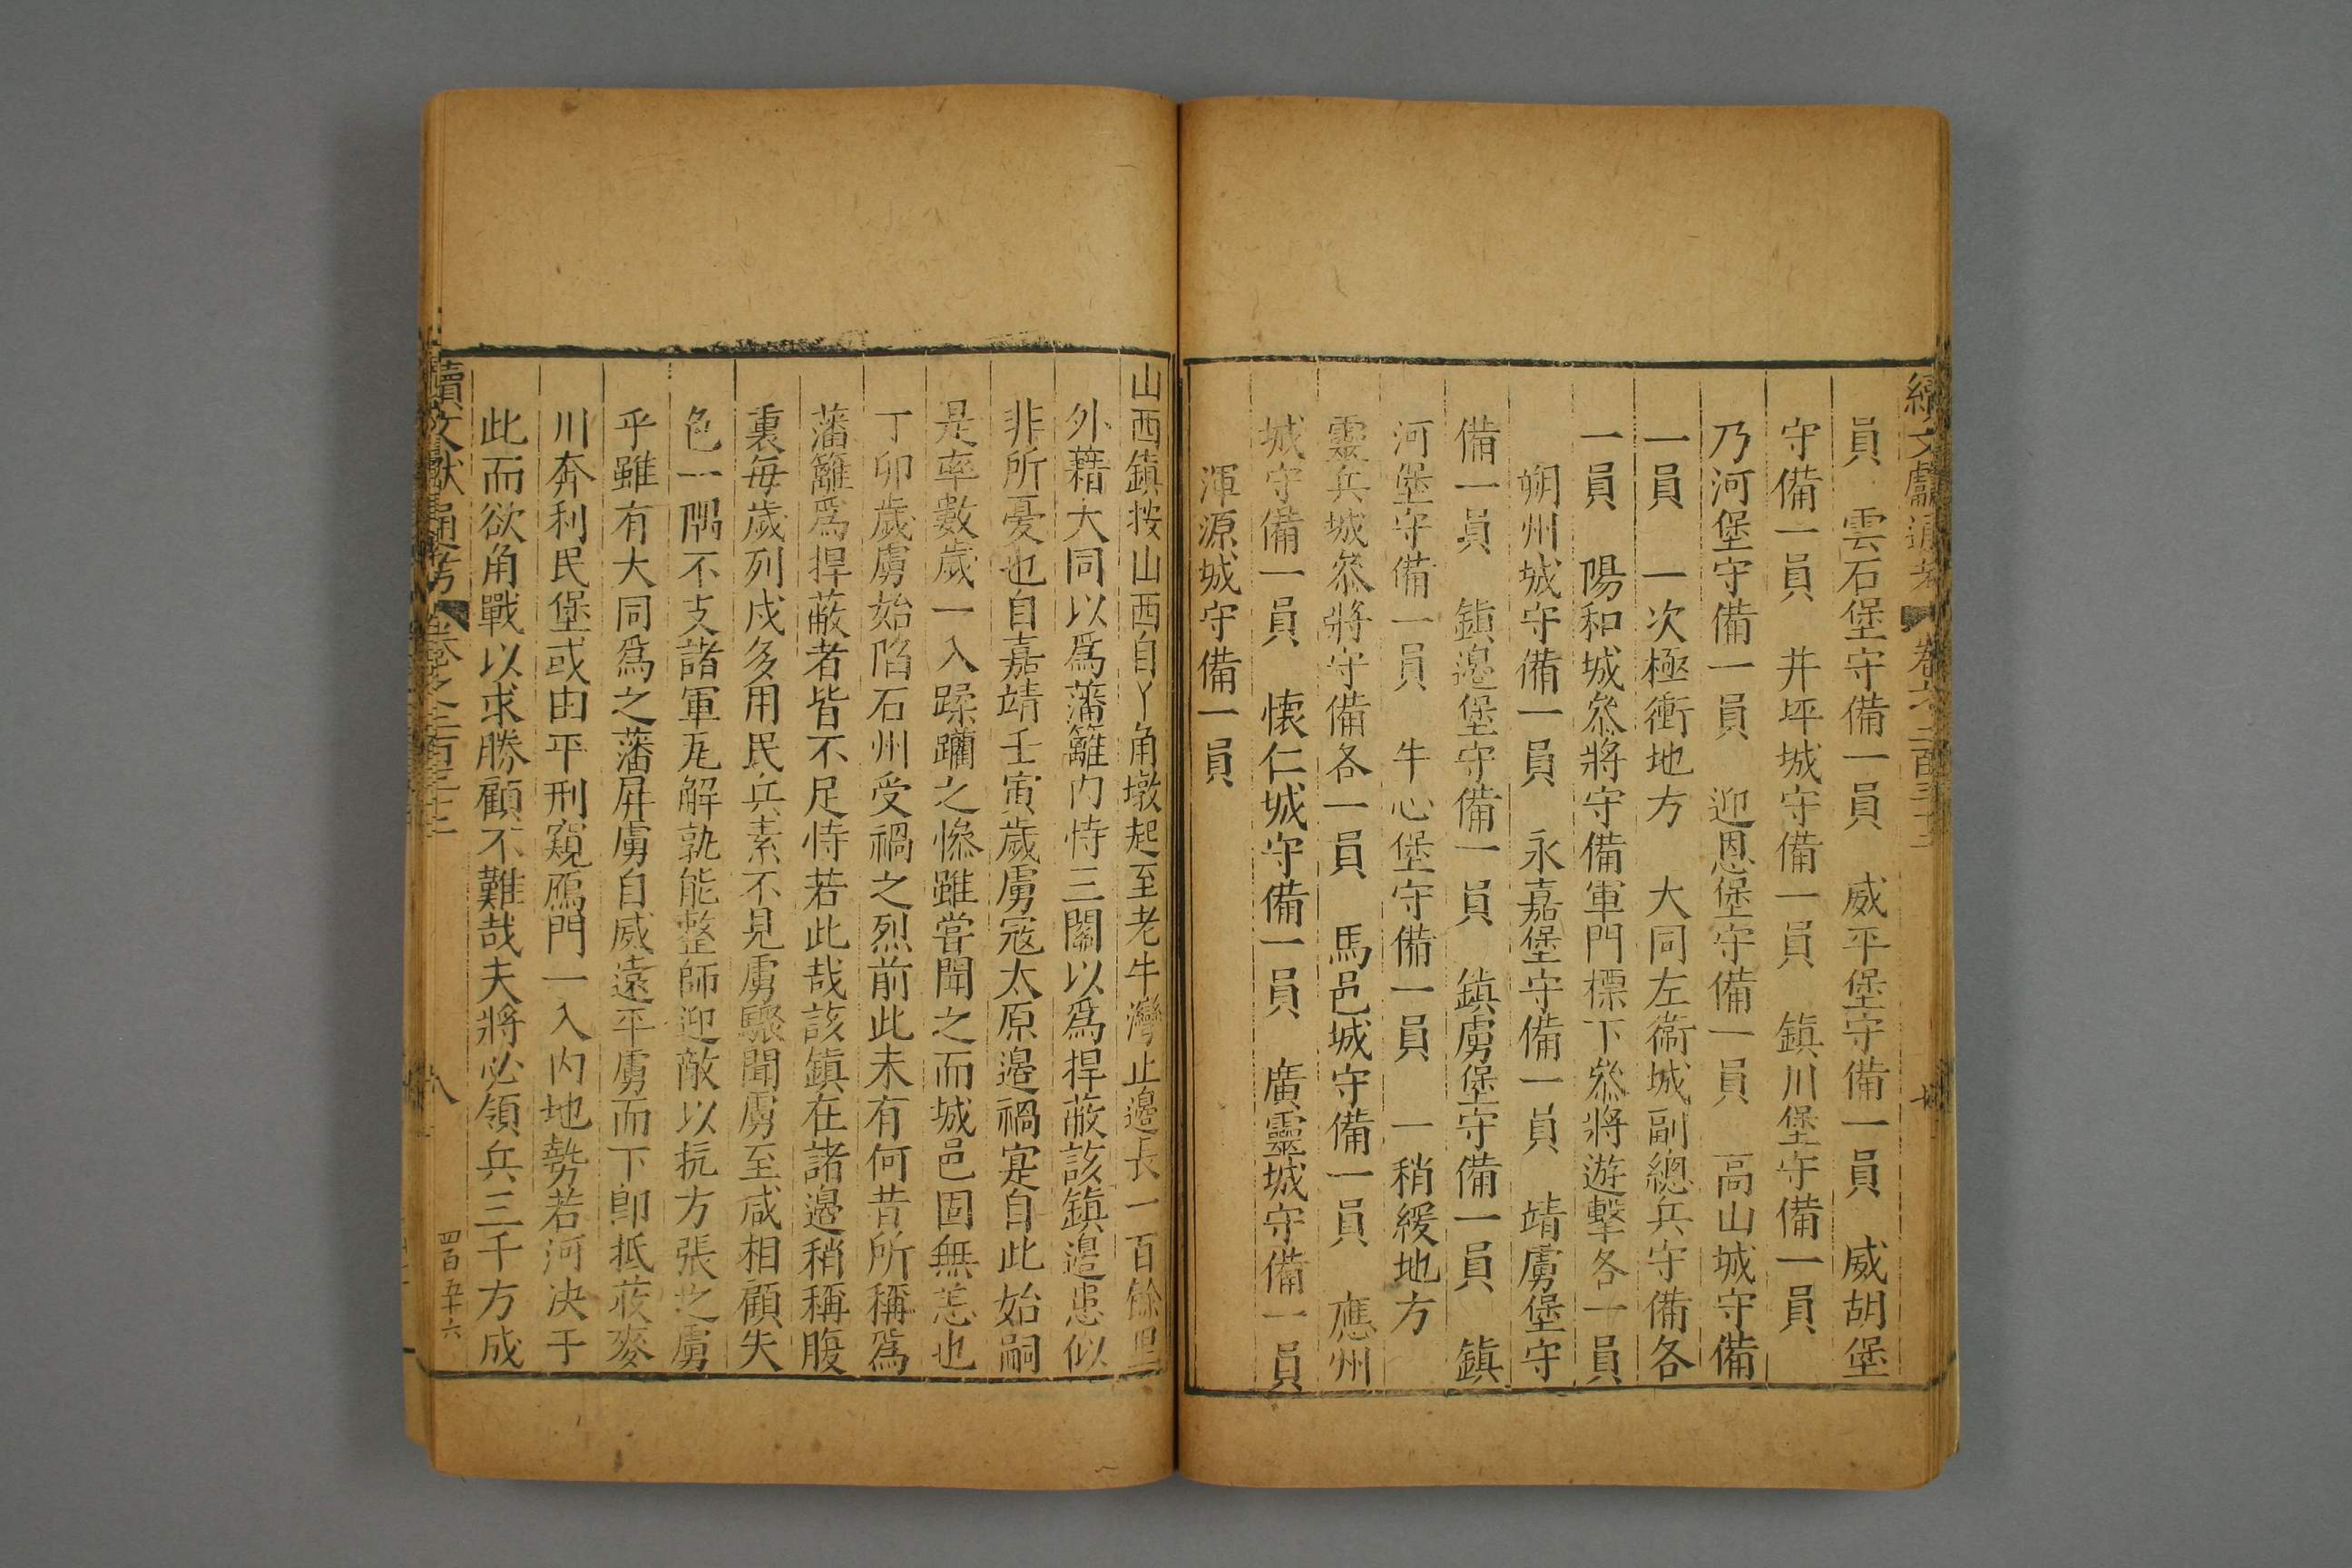 續文獻通考 卷之二百三十三
員 雲石堡守備一員 威平堡守備一員 威胡堡
守備一員 井坪城守備一員 鎮川堡守備一員
乃河堡守備一員 迎恩堡守備一員 高山城守備
一員 一次極衝地方 大同左衞城副總兵守備各
一員 陽和城叅將守備軍門標下叅將遊擊各一員
朔州城守備一員 永嘉堡守備一員 靖虜堡守
備一員 鎮邊堡守備一員 鎮虜堡守備一員 鎮
河堡守備一員 牛心堡守備一員 一稍緩地方
靈丘城叅將守備各一員 馬邑城守備一員 應州
城守備一員 懷仁城守備一員 廣靈城守備一員
渾源城守備一員
山西鎮按山西自丫角墩起至老牛灣止邊長一百餘里
外藉大同以爲藩籬内恃三關以爲捍蔽該鎮邊患似
非所憂也自嘉靖壬寅歲虜宼太原邊禍寔自此始嗣
是率數歲一入蹂躪之慘雖嘗聞之而城邑固無恙也
丁卯歲虜始陷石州受禍之烈前此未有何昔所稱爲
藩籬爲捍蔽者皆不足恃若此哉該鎮在諸邊稍稱腹
裏每歲列戍多用民兵素不見虜驟聞虜至咸相顧失
色一隅不支諸軍瓦解孰能整師迎敵以抗方張之虜
乎雖有大同爲之藩屛虜自威遠平虜而下卽抵莜麥
川奔利民堡或由平刑窺鴈門一入内地勢若河決于
此而欲角戰以求勝顧不難哉夫將必領兵三千方成
續文獻通考 卷之二百三十三 八 四百五十六